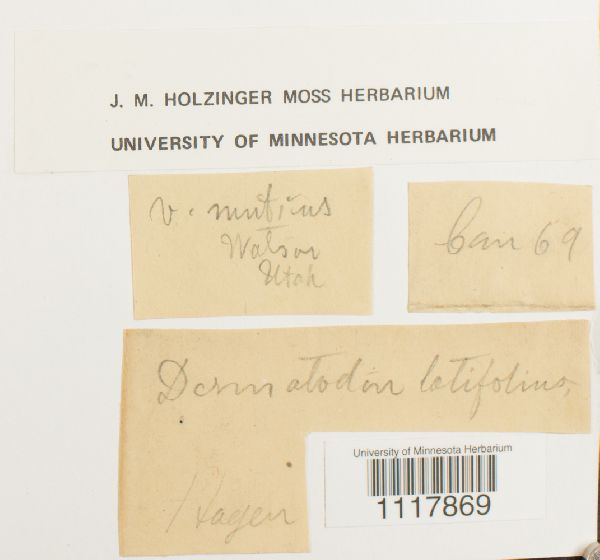 J. M. HOLZINGER MOSS HERBARIUM
UNIVERSITY OF MINNESOTA HERBARIUM
v. muticus
Watson
Utah
Can 69
Dermatodon latifolius,
Hagen
University of Minnesota Herbarium
1117869